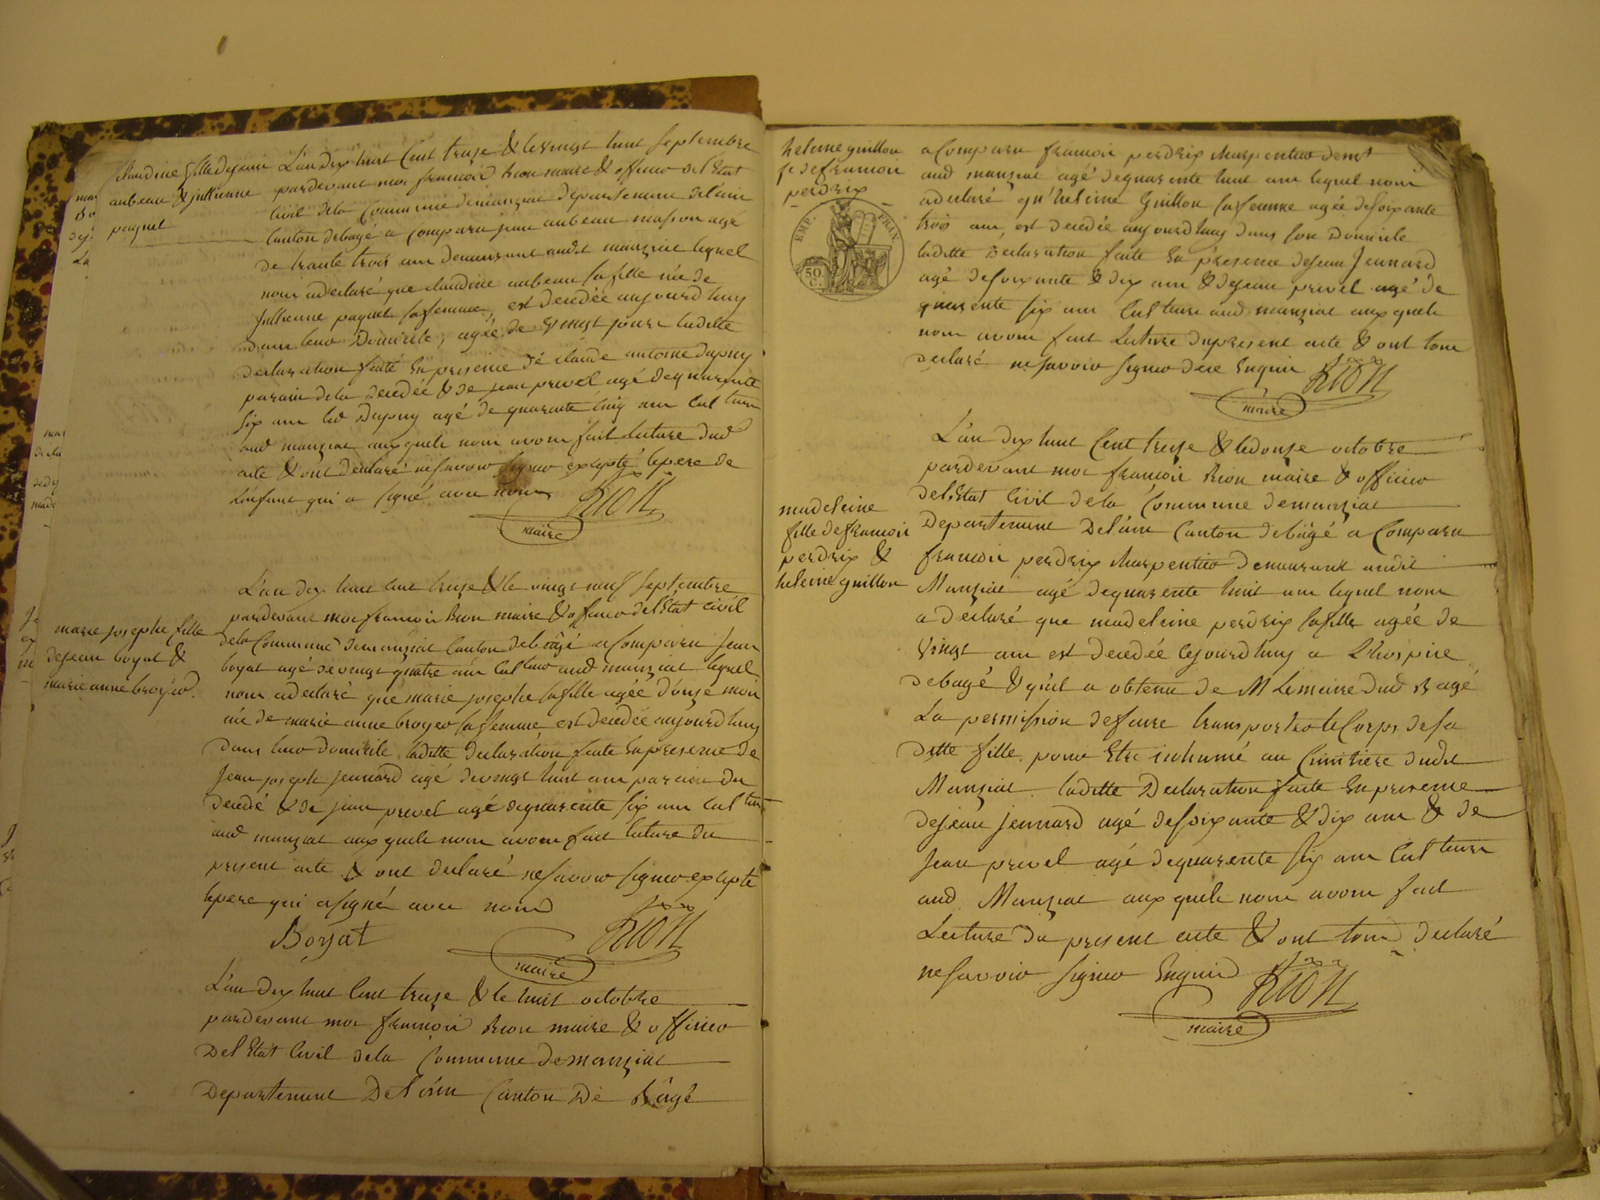 Claudine fille de jean
aubeau & jullienne
paquet
L'an dix huit Cent treize & le vingt huit Septembre
pardevant moi françois Rion maire & officier de l'Etat
Civil dela Commune demanziat departement delain
Canton debagé a Comparu jean aubeau masson agé
de trante trois ans demeurant audit manziat lequel
nous adeclaré que claudine aubeau sa fille née de
Jullienne paquet safemme, est decedée aujourdhuy
dans leur Domicile, agée de vingt jours laditte
declaration faitte En presence de claude antoine dupuy
parain dela decedée & de jean prevel agé dequarante
six ans led Dupuy agé de quarante cinq ans Cul teurs
aud manziat auxquels nous avons fait lecture dud
acte & ont declaré nesavoir signer excepté lepere de
Lenfant qui a signé avec nous
RION
maire
marie josephe fille
dejean boyat &
marie anne broyer.
L'an dix huit cent treize & le vingt neuf septembre
pardevant moi françois Rion maire & officier del'Etat civil
dela Commune demanziat Canton debagé acomparu jean
boyat agé devingt quatre ans Culteur aud manziat lequel
nous adeclaré que marie josephe safille agée d'onze mois
née de marie anne broyer safemme est decedée aujourdhuy
dans leur domicile laditte declaration faite Enpresence de
Jean joseph jennard agé devingt huit ans parain du
decedé & de jean prevel agé dequarente six ans cul teurs
aud manziat auxquels nous avons fait lecture du
present acte & ont declaré nesavoir signer excepté
lepere qui asigné avec nous
Boyat
RION
maire
L'an dix huit Cent treize & le huit octobre
pardevant moi françois Rion maire & officier
Del Etat Civil dela Commune demanziat
Departement Del'ain Canton De Bâgé
heleine guillon
fe defrançois
perdrix
EMP. FRAN.
50
C.
a Comparu françois perdrix charpentier demt
aud manziat agé dequarente huit ans lequel nous
adeclaré qu'heleine Guillon safemme agée desoixante
trois ans, est decedée aujourdhuy dans son Domicile
laditte declaration faite En presence dejean Jennard
agé desoixante & dix ans & dejean prevel agé de
quarente six ans Culteurs aud manziat auxquels
nous avons fait Lecture dupresent acte & ont tous
declaré nesavoir signer dece Enquis
RION
maire
madeleine
fille defrançois
perdrix &
heleine guillon
L'an dix huit Cent treize & ledouze octobre
pardevant moi françois Rion maire & officier
del'Etat Civil dela Commune demanziat
Departement Del'ain Canton debâgé a Comparu
françois perdrix charpentier demeurant audit
Manziat agé dequarente huit ans lequel nous
a declaré que madeleine perdrix safille agée de
Vingt ans est decedée cejourdhuy a L'hospice
debagé & qu'il a obtenu de M Lemaire dud Bagé
La permission defaire transporter le Corps desa
ditte fille pour Etre inhumé au Cimitiere dudit
Manziat. laditte Declaration faite Enpresence
dejean jennard agé desoixante & dix ans & de
jean prevel agé dequarente six ans Cul teurs
aud Manziat auxquels nous avons fait
Lecture du present acte & ont tous declaré
nesavoir signer Enquis
RION
maire